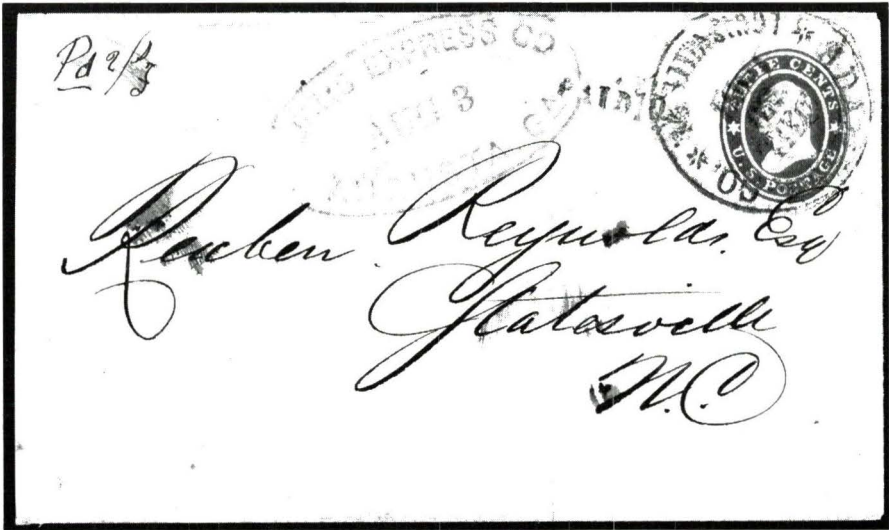 Pd 2/
EXPRESS CO
3
GA
PAID
THREE CENTS
U.S. POSTAGE
CO.
Reuben Reynolds. Esq
Statesville
N.C.